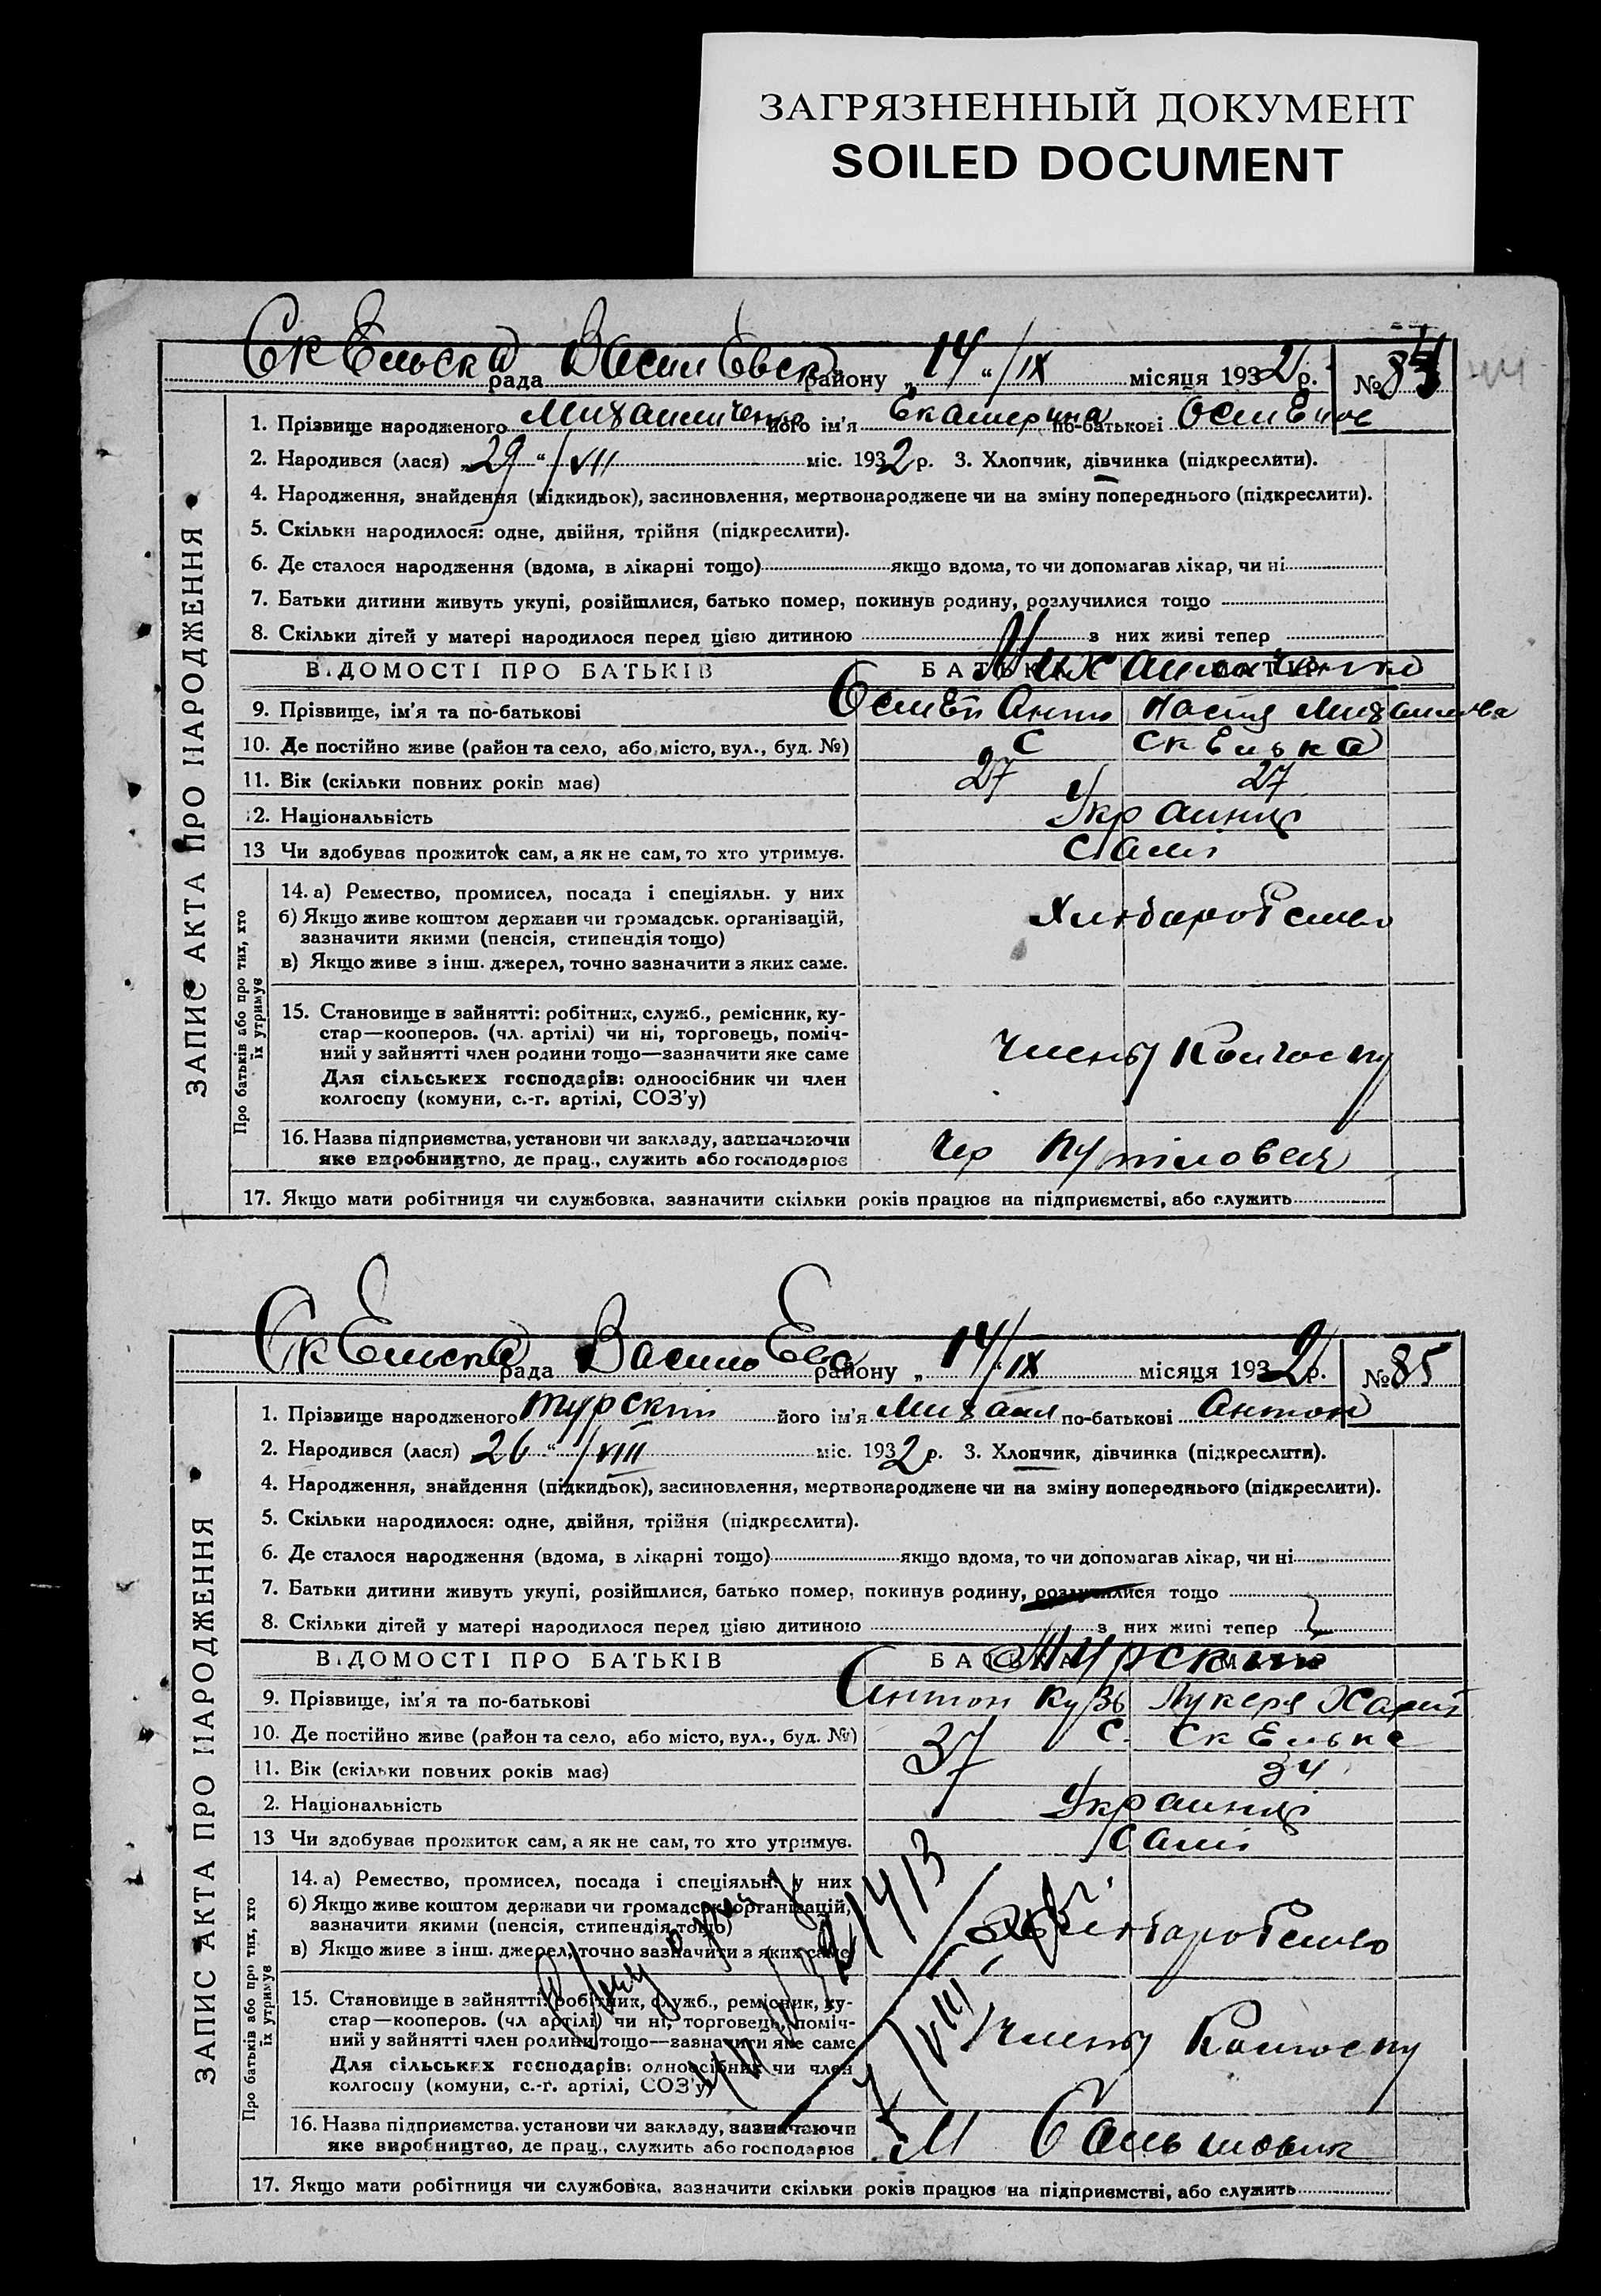 ЗАГРЯЗНЕННЫЙ ДОКУМЕНТ
SOILED DOCUMENT
Скельска рада Василевск району „14“ /IX місяця 1932 р. № 84
1. Прізвище народженого Михайличенко його ім'я Екатерина по-батькові Осипівна
2. Народився (лася) „29“ /VII міс. 1932 р. 3. Хлопчик, дівчинка (підкреслити).
4. Народження, знайдення (підкидьок), засиновлення, мертвонароджене чи на зміну попереднього (підкреслити).
5. Скільки народилося: одне, двійня, трійня (підкреслити).
6. Де сталося народження (вдома, в лікарні тощо) якщо вдома, то чи допомагав лікар, чи ні
7. Батьки дитини живуть укупі, розійшлися, батько помер, покинув родину, розлучилися тощо
8. Скільки дітей у матері народилося перед цією дитиною з них живі тепер
ВІДОМОСТІ ПРО БАТЬКІВ БАТЬКО МАТИ
9. Прізвище, ім'я та по-батькові
10. Де постійно живе (район та село, або місто, вул., буд. №) С Скелька
11. Вік (скільки повних років має) 27 27
12. Національність Украинці
13 Чи здобував прожиток сам, а як не сам, то хто утримує. Самі
14. а) Ремество, промисел, посада і спеціяльн. у них
б) Якщо живе коштом держави чи громадськ. організацій,
зазначити якими (пенсія, стипендія тощо)
в) Якщо живе з інш. джерел, точно зазначити з яких саме.
15. Становище в зайнятті: робітник, служб., ремісник, ку-
стар—кооперов. (чл. артілі) чи ні, торговець, поміч-
ний у зайнятті член родини тощо—зазначити яке саме
Для сільських господарів: одноосібник чи член
колгоспу (комуни, с.-г. артілі, СОЗ'у)
Члены Колгоспу
16. Назва підприємства, установи чи закладу, зазначаючи
яке виробництво, де прац., служить або господарює
17. Якщо мати робітниця чи службовка, зазначити скільки років працює на підприємстві, або служить
ЗАПИС АКТА ПРО НАРОДЖЕННЯ
Про батьків або про тих, хто
їх утримує
Скельска рада Васильевс району „14 /IX місяця 1932 р. № 85
1. Прізвище народженого Турский його ім'я Михаил по-батькові Антон
2. Народився (лася) 26 “ /VIII міс. 1932 р. 3. Хлопчик, дівчинка (підкреслити).
4. Народження, знайдення (підкидьок), засиновлення, мертвонароджене чи на зміну попереднього (підкреслити).
5. Скільки народилося: одне, двійня, трійня (підкреслити).
6. Де сталося народження (вдома, в лікарні тощо) якщо вдома, то чи допомагав лікар, чи ні
7. Батьки дитини живуть укупі, розійшлися, батько помер, покинув родину, розлучилися тощо
8. Скільки дітей у матері народилося перед цією дитиною з них живі тепер
ВІДОМОСТІ ПРО БАТЬКІВ БАТЬКО МАТИ
9. Прізвище, ім'я та по-батькові Антон Кузь
10. Де постійно живе (район та село, або місто, вул., буд. №) С. Скелька
11. Вік (скільки повних років має) 37 34
2. Національність Украинці
13 Чи здобував прожиток сам, а як не сам, то хто утримує. Самі
14. а) Ремество, промисел, посада і спеціяльн. у них
б) Якщо живе коштом держави чи громадськ. організацій,
зазначити якими (пенсія, стипендія тощо)
в) Якщо живе з інш. джерел, точно зазначити з яких саме
15. Становище в зайнятті: робітник, служб., ремісник, ку-
стар—кооперов. (чл артілі) чи ні, торговець, поміч-
ний у зайнятті член родини тощо—зазначити яке саме
Для сільських господарів: одноосібник чи член
колгоспу (комуни, с.-г. артілі, СОЗ'у)
Члены Колгоспу
16. Назва підприємства, установи чи закладу, зазначаючи
яке виробництво, де прац., служить або господарює
17. Якщо мати робітниця чи службовка, зазначити скільки років працює на підприємстві, або служить
ЗАПИС АКТА ПРО НАРОДЖЕННЯ
Про батьків або про тих, хто
їх утримує